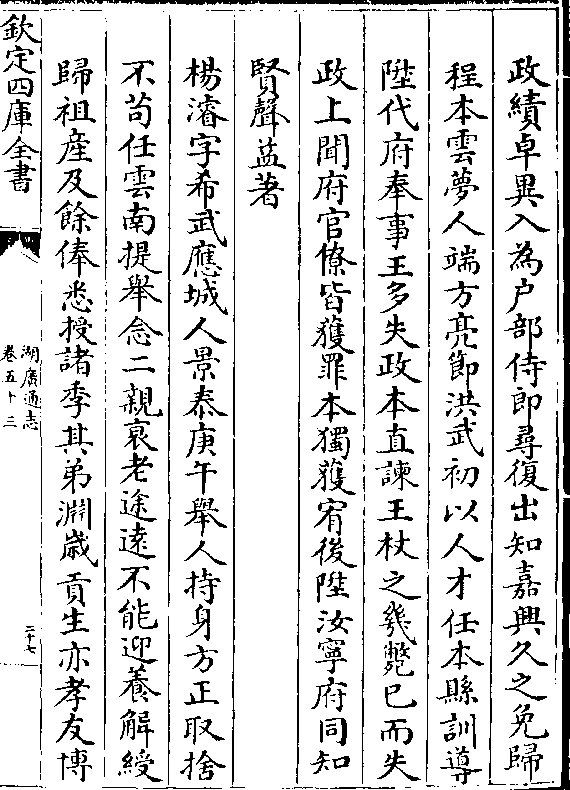 政績卓異入為户部侍郎尋復出知嘉興久之免歸
程本雲夢人端方亮節洪武初以人才任本縣訓導
陞代府奉事王多失政本直諫王杖之幾斃已而失
政上聞府官僚皆獲罪本獨獲宥後陞汝寧府同知
賢聲益著
楊濬字希武應城人景泰庚午舉人持身方正取捨
不苟任雲南提舉念二親衰老途遠不能迎養解綬
歸祖産及餘俸悉授諸季其弟淵歲貢生亦孝友博
欽定四庫全書
湖廣通志
卷五十三
二十七